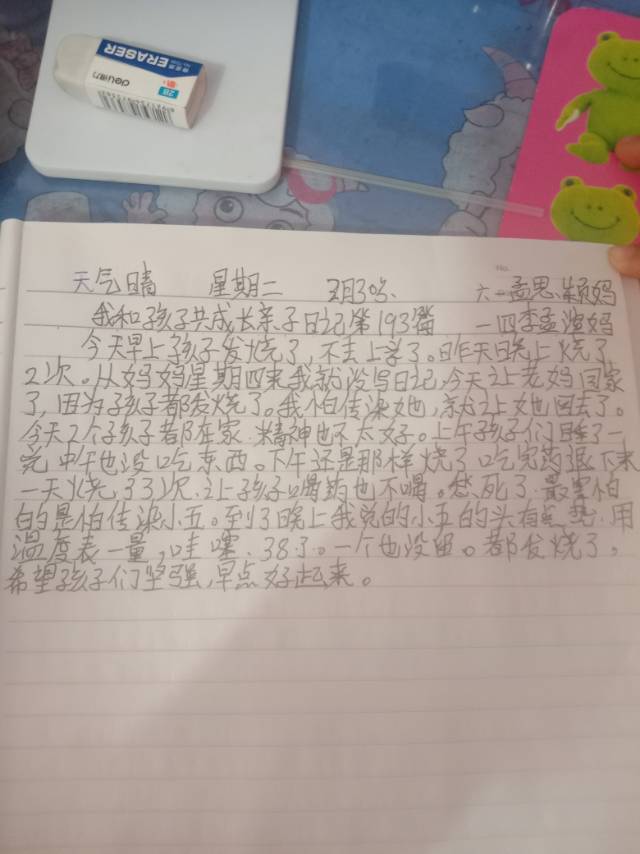 ERASER
deli得力
No.
天气晴 星期二 月30 六一孟思颖妈
我和孩子共成长亲子日记第193篇 一四李孟溰妈
今天早上孩子发烧了,不去上学了。昨天晚上烧了
2次。从妈妈星期四来我就没写日记,今天让老妈回家
了,因为孩子都发烧了。我怕传染她,就让她回去了。
今天2个孩子都在家.精神也不太好。上午孩子们睡了一
完中午也没吃东西。下午还是那样烧了吃完药退下来
一天烧了3次.让孩子喝药也不喝。愁死了.最害怕
的是怕传染小五。到了晚上我说的小五的头有点热.用
温度表一量,哇噻.38了。一个也没留。都发烧了。
希望孩子们坚强,早点好起来。